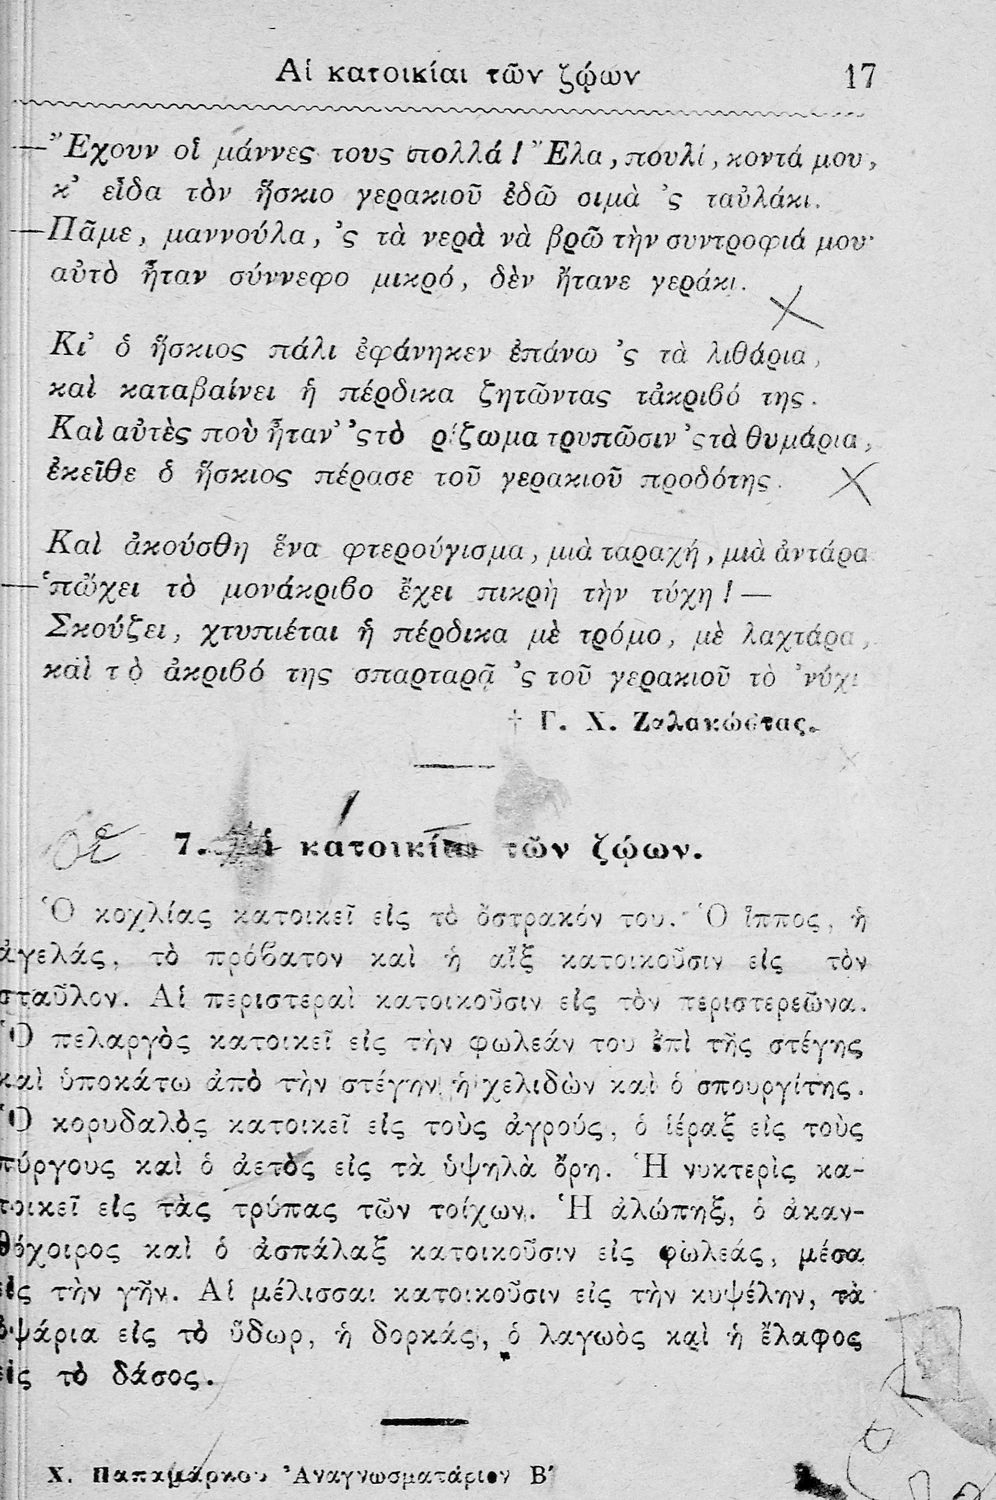 Αἱ κατοικίαι τῶν ζῴων 17
—Ἔχουν οἱ μάννες τους πολλά! Ἔλα, πουλί, κοντά μου,
κ’ εἶδα τὸν ἥσκιο γερακιοῦ ἐδῶ σιμὰ ’ς ταὐλάκι.
—Πᾶμε, μαννούλα, ’ς τὰ νερὰ νὰ βρῶ τὴν συντροφιά μου·
αὐτὸ ἦταν σύννεφο μικρό, δὲν ἤτανε γεράκι.
Κι’ ὁ ἥσκιος πάλι ἐφάνηκεν ἐπάνω ’ς τὰ λιθάρια,
καὶ καταβαίνει ἡ πέρδικα ζητῶντας τἀκριβό της.
Καὶ αὐτὲς ποὺ ἦταν’ ’ςτὸ ρίζωμα τρυπῶσιν ’ςτὰ θυμάρια,
ἐκεῖθε ὁ ἥσκιος πέρασε τοῦ γερακιοῦ προδότης.
Καὶ ἀκούσθη ἕνα φτερούγισμα, μιὰ ταραχή, μιὰ ἀντάρα
—‘πὤχει τὸ μονάκριβο ἔχει πικρὴ τὴν τύχη! —
Σκούζει, χτυπιέται ἡ πέρδικα μὲ τρόμο, μὲ λαχτάρα,
καὶ τὸ ἀκριβό της σπαρταρᾷ ’ς τοῦ γερακιοῦ τὸ ’νύχι
† Γ. Χ. Ζαλακώστας.
7. Αἱ κατοικίαι τῶν ζῴων.
Ὁ κοχλίας κατοικεῖ εἰς τὸ ὄστρακόν του. Ὁ ἵππος, ἡ
ἀγελάς, τὸ πρόβατον καὶ ἡ αἲξ κατοικοῦσιν εἰς τὸν
σταῦλον. Αἱ περιστεραὶ κατοικοῦσιν εἰς τὸν περιστερεῶνα.
Ὁ πελαργὸς κατοικεῖ εἰς τὴν φωλεάν του ἐπὶ τῆς στέγης
καὶ ὑποκάτω ἀπὸ τὴν στέγην ἡ χελιδὼν καὶ ὁ σπουργίτης.
Ὁ κορυδαλὸς κατοικεῖ εἰς τοὺς ἀγρούς, ὁ ἱέραξ εἰς τοὺς
πύργους καὶ ὁ ἀετὸς εἰς τὰ ὑψηλὰ ὄρη. Ἡ νυκτερὶς κα-
τοικεῖ εἰς τὰς τρύπας τῶν τοίχων. Ἡ ἀλώπηξ, ὁ ἀκαν-
θόχοιρος καὶ ὁ ἀσπάλαξ κατοικοῦσιν εἰς φωλεάς, μέσα
εἰς τὴν γῆν. Αἱ μέλισσαι κατοικοῦσιν εἰς τὴν κυψέλην, τὰ
ὀψάρια εἰς τὸ ὕδωρ, ἡ δορκάς, ὁ λαγωὸς καὶ ἡ ἔλαφος
εἰς τὸ δάσος.
Χ. Παπαμάρκου Ἀναγνωσματάριον Β΄